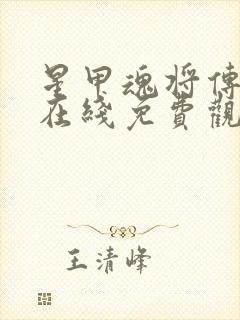 星甲魂将傳
在綫免費觀
王清峰